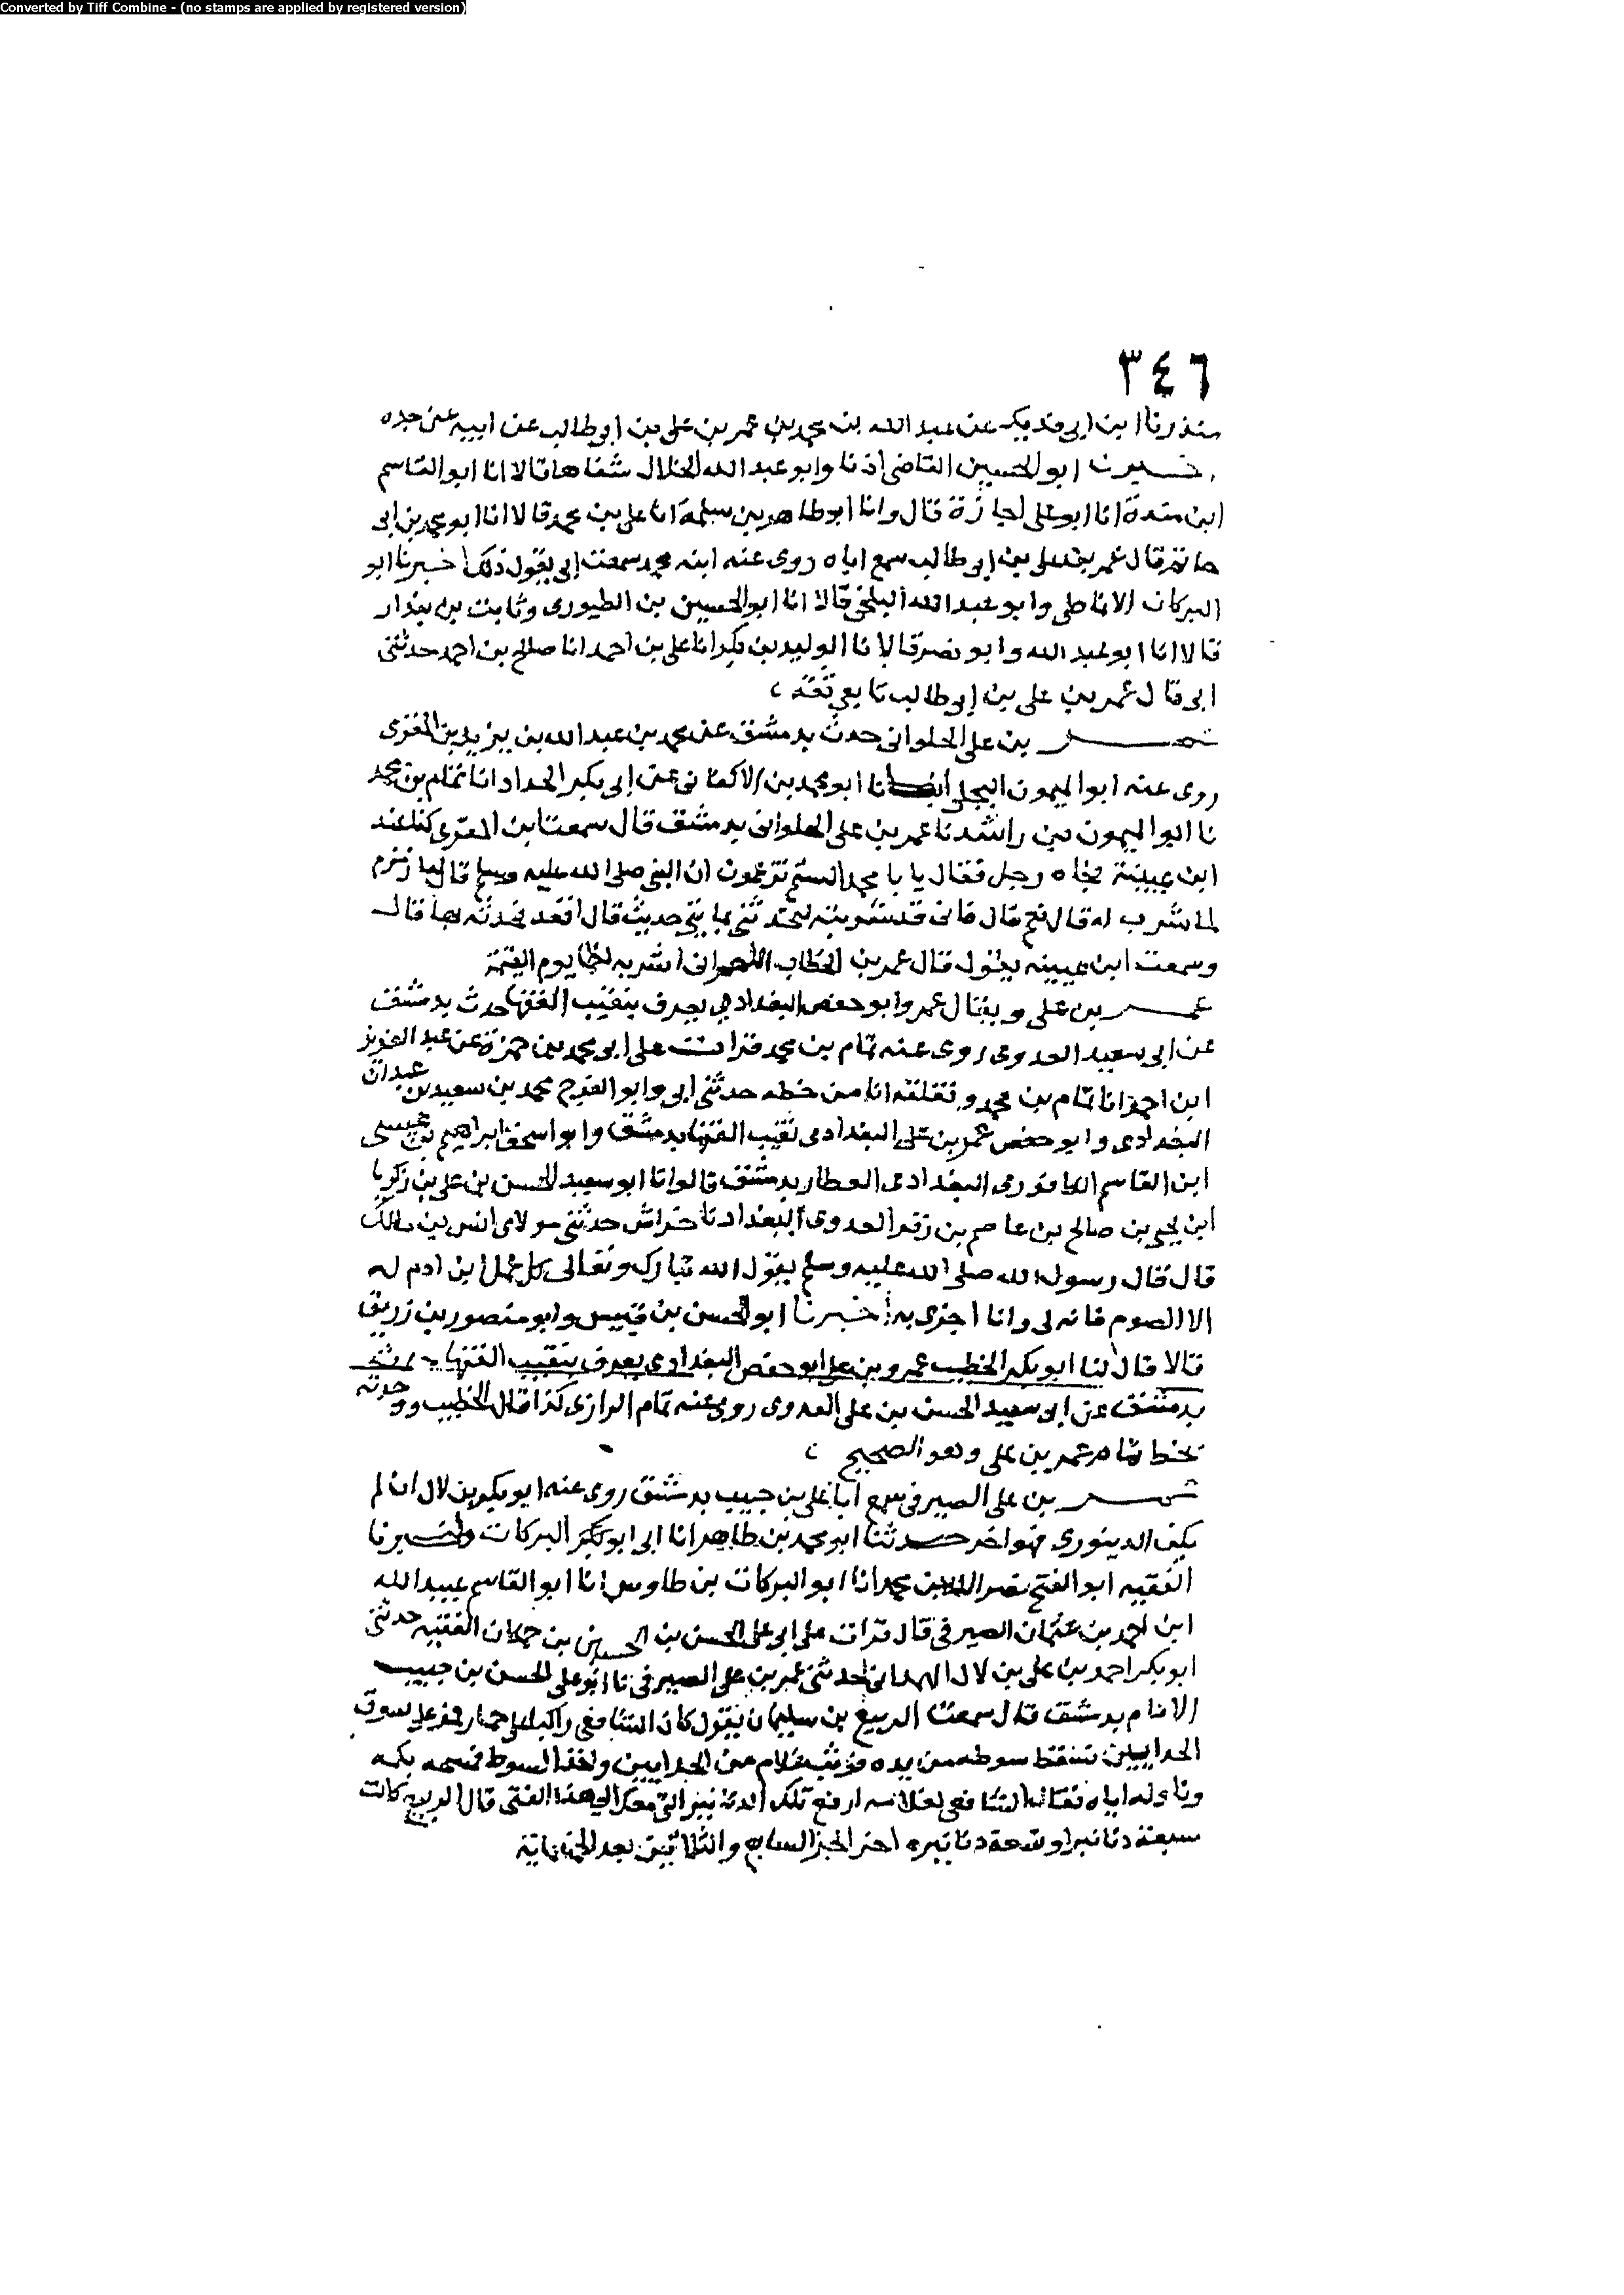 Converted by Tiff Combine - (no stamps are applied by registered version)
٣٤٦
منذرنا ابن ابى فديك عن عبد الله بن محمد بن عمر بن على بن ابى طالب عن ابيه عن جده
اخبرنا ابو الحسين القاضى اذنا وابو عبد الله الخلال شفاها قالا انا ابو القاسم
ابن مندة انا ابو على اجازة قال وانا ابو طاهر بن سلمة انا على بن محمد قالا انا ابو محمد بن ابى
حاتم قال عمر بن على بن ابى طالب سمع اباه روى عنه ابنه محمد سمعت ابى يقول ذلك اخبرنا ابو
البركات الانماطى وابو عبد الله البلخى قالا انا ابو الحسين بن الطيورى وثابت بن بندار
قالا انا ابو عبد الله وابو نصر قالا نا الوليد بن بكر انا على بن احمد انا صالح بن احمد حدثنى
ابى قال عمر بن على بن ابى طالب تابعى ثقة
عمر بن على الحلوانى حدث بدمشق عن محمد بن عبد الله بن يزيد بن المقرى
روى عنه ابو الميمون البجلى انا ابو محمد بن الاكفانى عن ابى بكر الحداد انا تمام بن محمد
نا ابو الميمون بن راشد نا عمر بن على الحلوانى بدمشق قال سمعت ابن المقرى كنا عند
ابن عيينة فجاه رجل فقال يا با محمد الستم تزعمون ان النبى صلى الله عليه وسلم قال ما زمزم
لما شرب له قال نعم قال فانى قد شربته لتحدثنى بمايتى حديث قال اقعد فحدثه بها قال
وسمعت ابن عيينه يقول قال عمر بن الخطاب اللهم انى اشربه لظما يوم القيمة
عمر بن على ويقال عمرو ابو حفص البغدادى يعرف بنقيب الفقها حدث بدمشق
عن ابى سعيد العدوى روى عنه تمام بن محمد قرات على ابى محمد بن حمزة عن عبد العزيز
ابن احمد انا تمام بن محمد ونقلته انا من خطه حدثنى ابى وابو الفرج محمد بن سعيد بن عبدان
البغدادى وابو حفص عمر بن على البغدادى نقيب الفقها بدمشق وابو اسحق ابراهيم بن عيسى
ابن القاسم الكافورى البغدادى العطار بدمشق قالوا نا ابو سعيد الحسن بن على بن زكريا
ابن يحيى بن صالح بن عاصم بن زفر العدوى البغداد نا خراش حدثنى مولاى انس بن مالك
قال قال رسول الله صلى الله عليه وسلم يقول الله تبارك وتعالى كل عمل ابن ادم له
الا الصوم فانه لى وانا اجزى به اخبرنا ابو الحسن بن قبيس وابو منصور بن زريق
قالا قال لنا ابو بكر الخطيب عمرو بن على ابو حفص البغدادى يعرف بنقيب الفقها حدث
بدمشق عن ابى سعيد الحسن بن على العدوى روى عنه تمام الرازى كذا قال الخطيب ووجدته
بخط تمام عمر بن على وهو الصحيح
عمر بن على الصيرفى سمع ابا على بن حبيب بدمشق روى عنه ابو بكر بن لال ان لم
يكن الدينورى فهو اخر حدثنا ابو محمد بن طاهر انا ابى ابو البركات واخبرنا
الفقيه ابو الفتح نصر الله بن محمد انا ابو البركات بن طاوس انا ابو القاسم عبيد الله
ابن احمد بن عثمان الصيرفى قال قرات على ابى على الحسن بن الحسين بن حمكان الفقيه حدثنى
ابو بكر احمد بن على بن لال الهمدانى حدثنى عمر بن على الصيرفى نا ابو على الحسن بن حبيب
الامام بدمشق قال سمعت الربيع بن سليمان يقول كان الشافعى راكبا على حمار فمر على سوق
الحدايين فسقط سوطه من يده فوثب غلام من الحدايين واخذ السوط فمسحه بكمه
وناوله اياه فقال الشافعى لغلامه ادفع تلك الدنانير التى معك الى هذا الفتى قال الربيع كانت
سبعة دنانير او تسعة دنانير اخر الجز السابع والثلاثين بعد الخمسماية